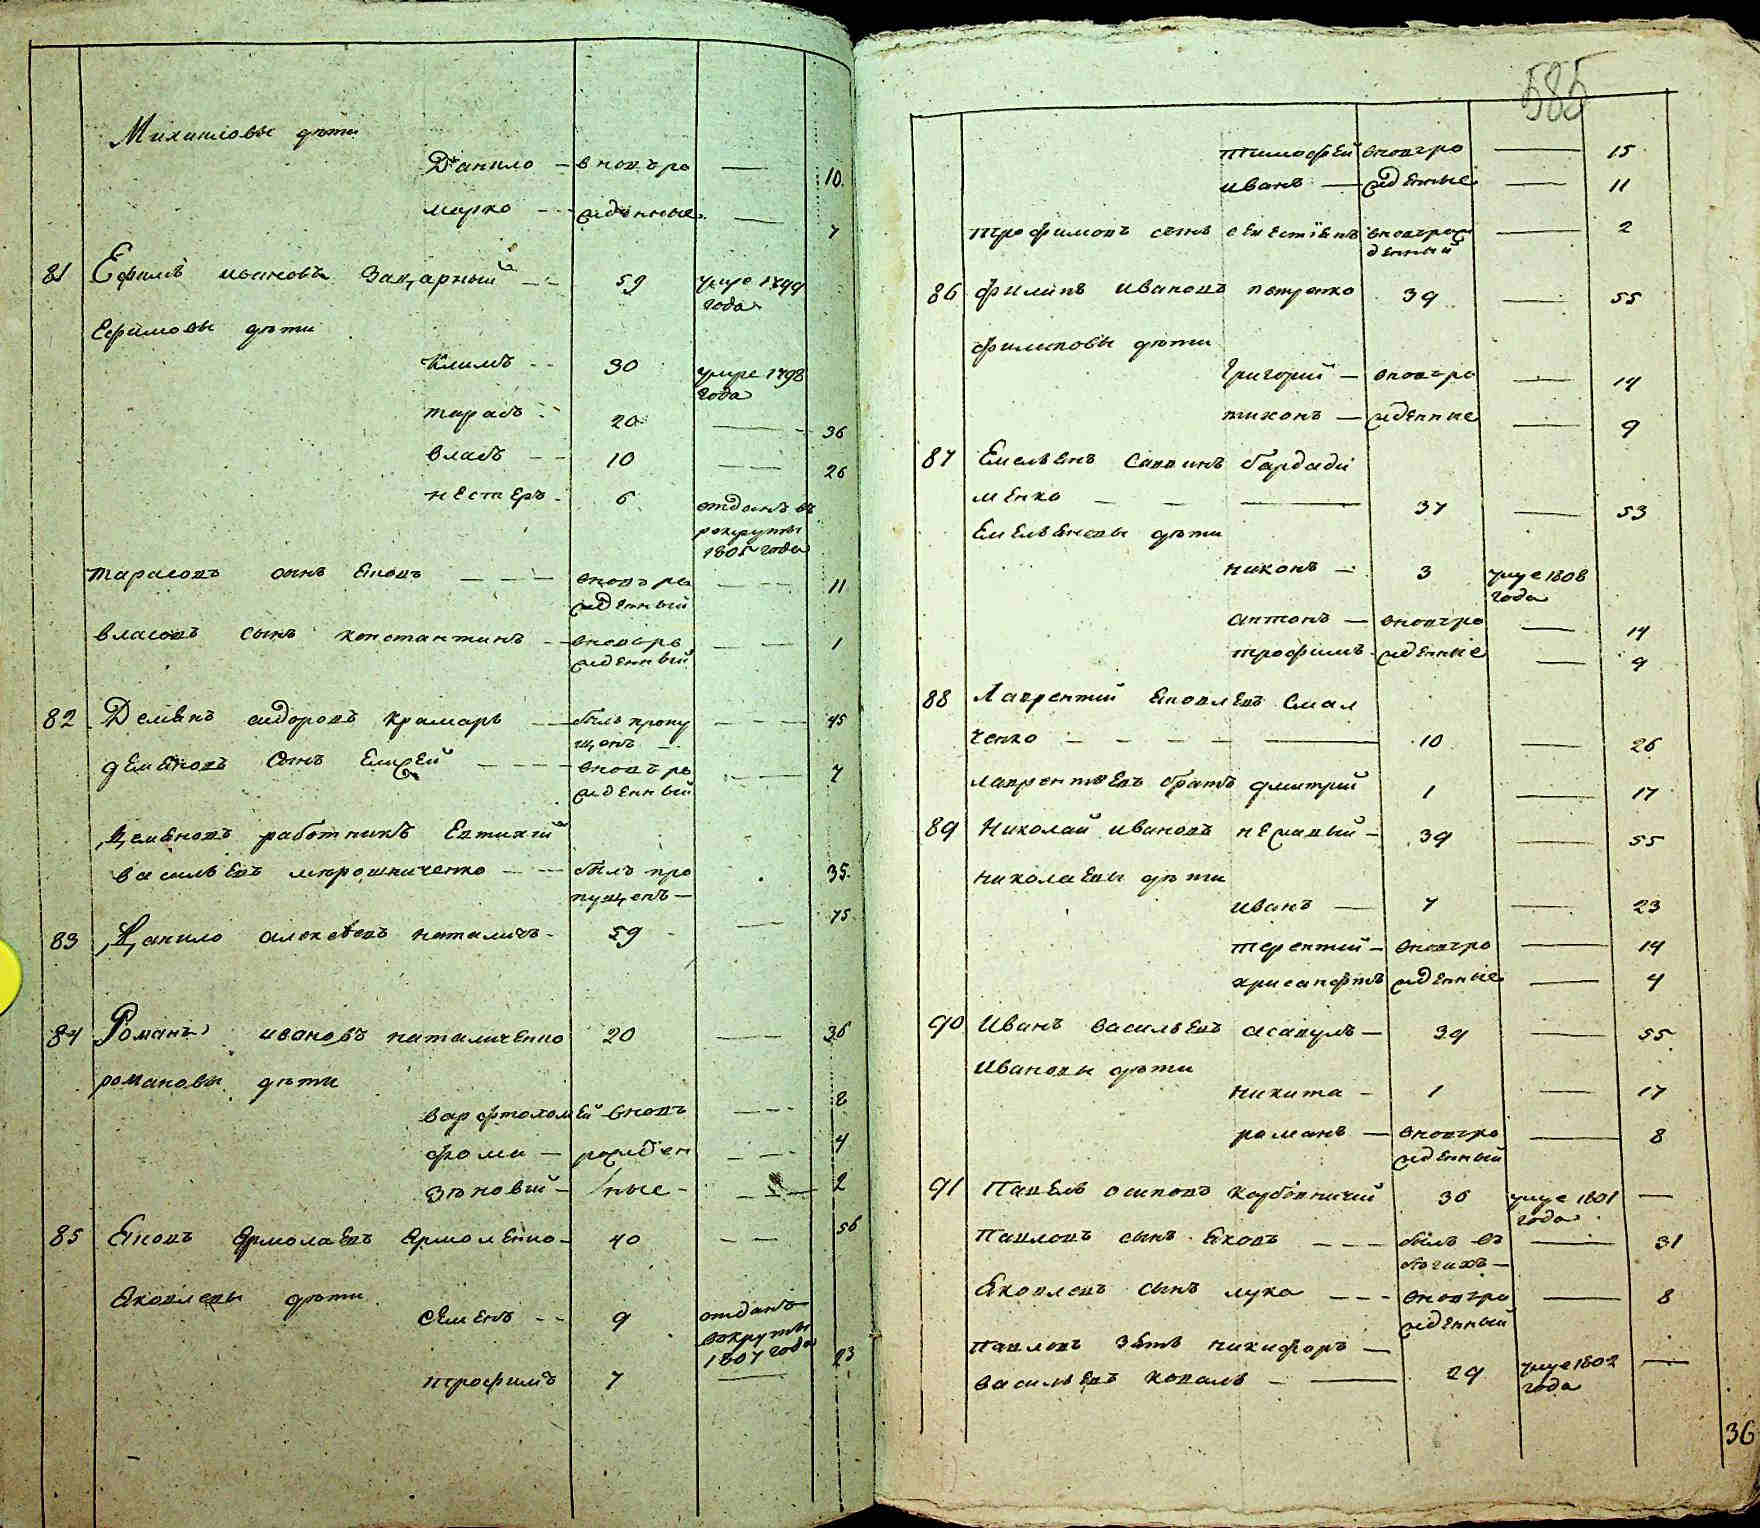 Михаиловы дѣти
Данило – вновъро 10.
марко – жденные 7
81 Ефимъ ивановъ Зацарный 59 умре 1799
года
Ефимовы дѣти
климъ 30 умре 1798
года
тарасъ 20 36
власъ 10 26
нестеръ 6 отданъ въ
рокруты
1805 года
тарасовъ сынъ яковъ вновъро 11
жденный
власовъ сынъ константинъ вновъро 1
жденный
82 Демянъ сидоровъ крамаръ былъ пропу 45
щонъ
демяновъ сынъ Елисей вновъро 7
жденный
Демяновъ работникъ Евтихий
васильевъ мирошниченко былъ про 35.
пущенъ
83 Данило алексѣевъ наталичъ 59 75
84 Романъ ивановъ наталиченко 20 36
романовы дѣти
варфтоломей вновъ 8
фома – рожден 4
зѣновий – ные 2
85 Яковъ Ермолаевъ Ермоленко 40 56
Яковлевы дѣти
семенъ 9 отданъ
вокруты
1807 года
трофимъ 7 23
585
тимофей вновъро 15
иванъ – жденные 11
трофимовъ сынъ севестіянъ вновърож 2
денный
86 филипъ ивановъ петренко 39 55
филиповы дѣти
григорий – вновъро 14
тихонъ – жденные 9
87 Емельянъ саввинъ бардади
менко 37 53
Емельяновы дѣти
никонъ 3 умре 1808
года
антонъ – вновъро 14
трофимъ жденные 9
88 Лаврентий яковлевъ Смал
ченко 10 26
лаврентьевъ братъ дмитрий 1 17
89 Николай ивановъ 39 55
николаевы дѣти
иванъ 7 23
терентий – вновъро 14
хрисанфтъ жденные 4
90 Иванъ васильевъ асавулъ 39 55
Ивановы дѣти
никита 1 17
романъ – вновъро 8
жденный
91 Павелъ осиповъ карбовничий 36 умре 1801
года
Павловъ сынъ яковъ былъ въ 31
бегахъ
Яковлевъ сынъ лука вновъро 8
жденный
Павловъ зять никифоръ
васильевъ ковалъ 29 умре 1802
года
36